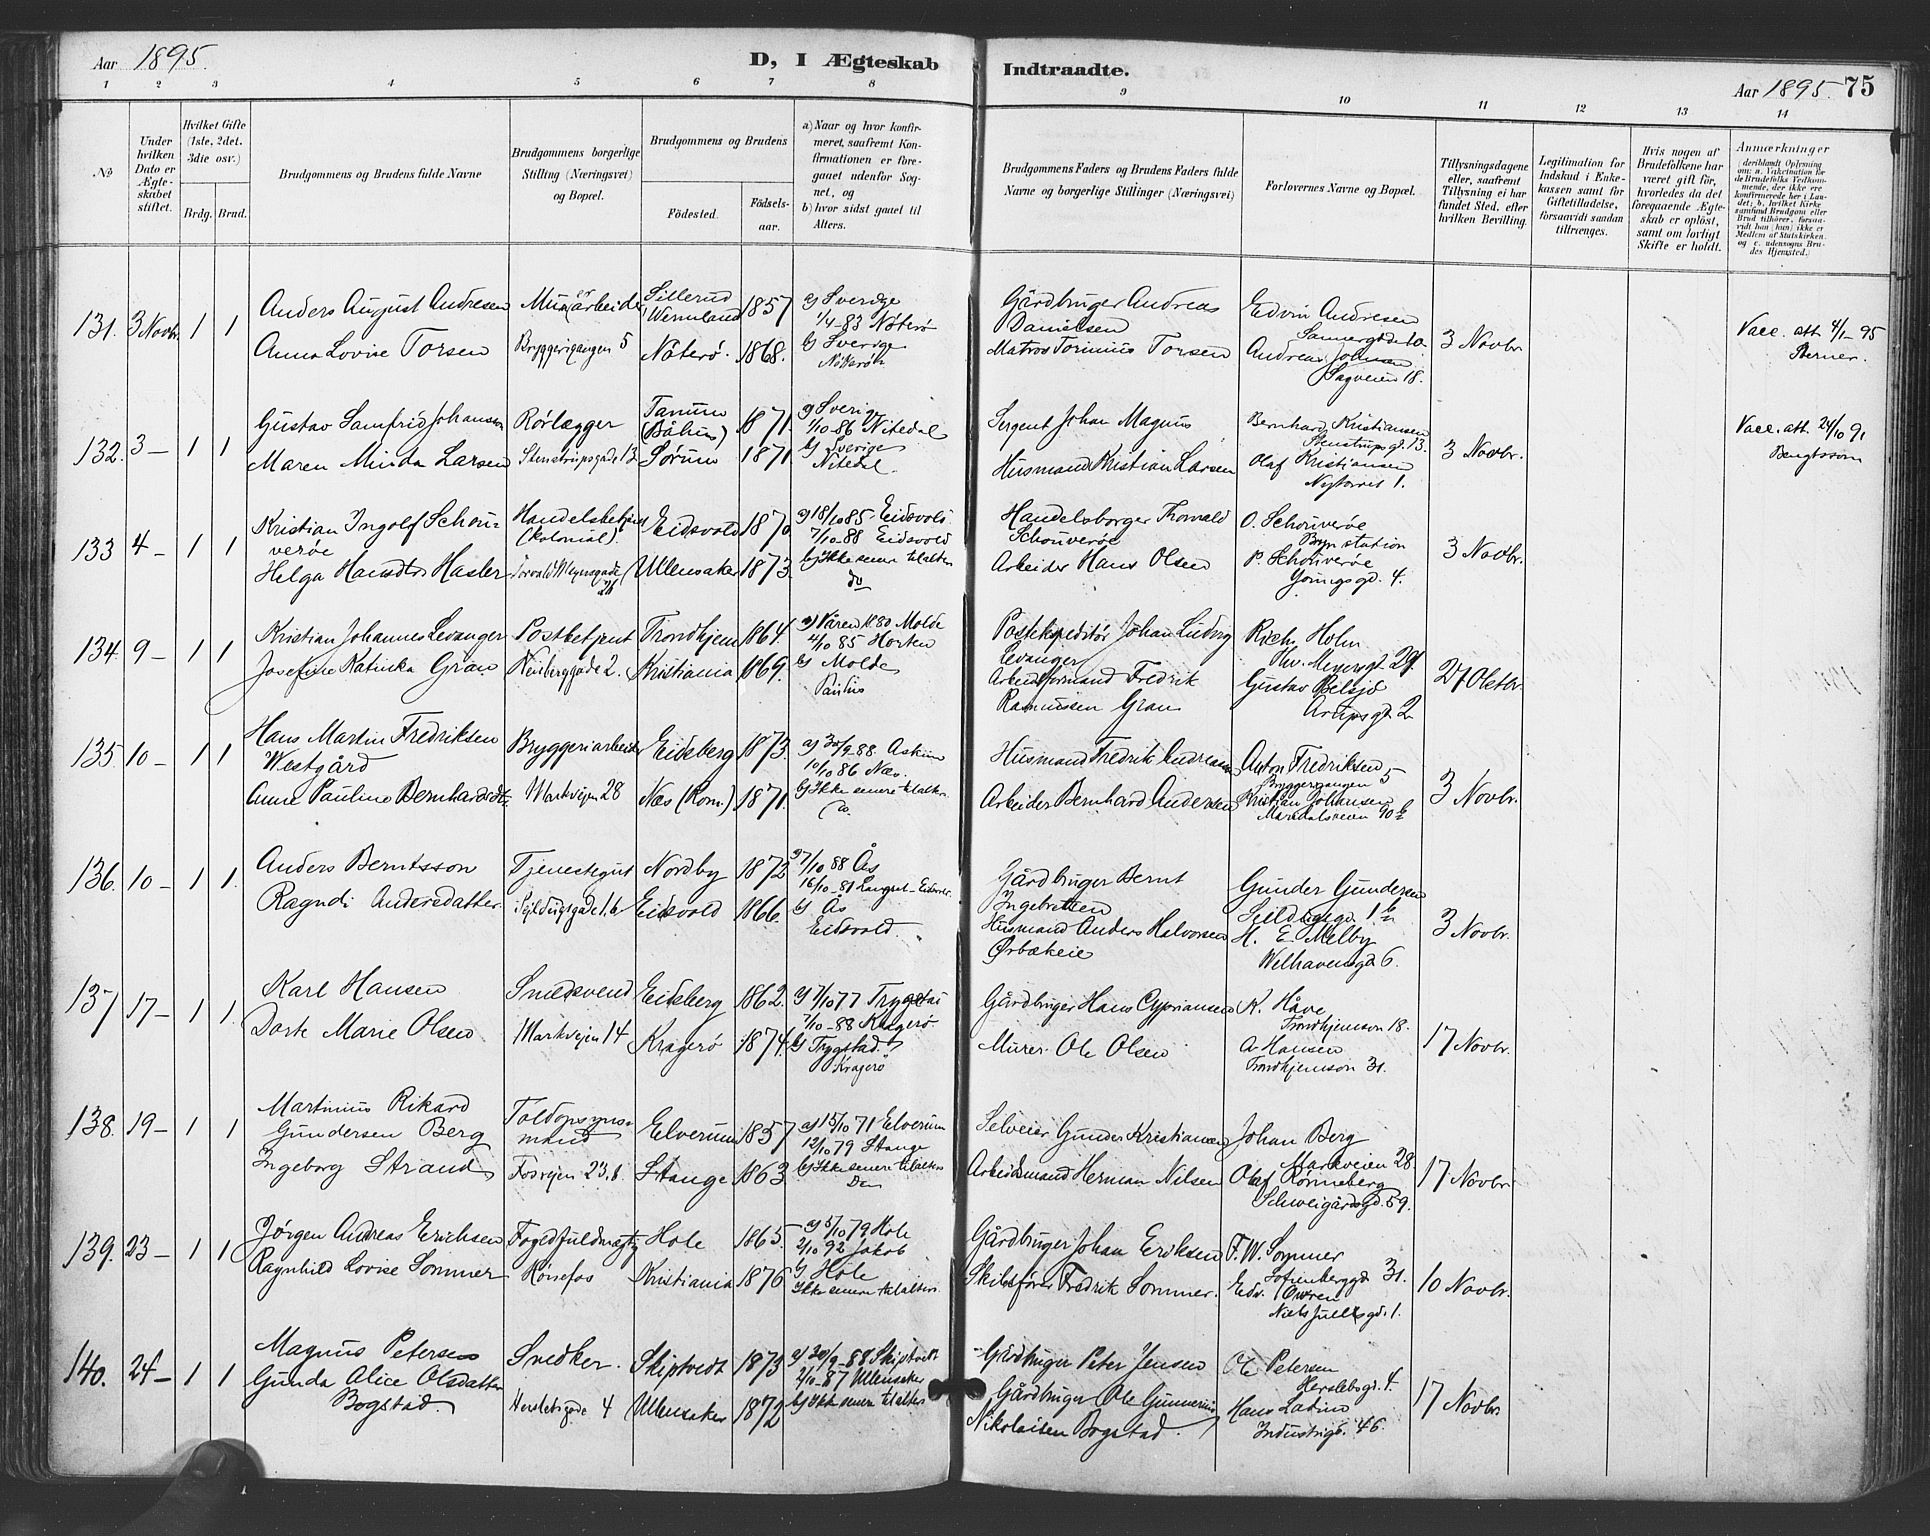 Aar 1895.
D, I Ægteskab
Indtraadte.
Aar 1895. 75
1 2 3 4 5 6 7 8 9 10 11 12 13 14
No
Under hvilken Dato er Ægteskabet stiftet.
Hvilket Gifte (1ste, 2det. 3die osv.)
Brdg. Brud.
Brudgommens og Brudens fulde Navne
Brudgommens borgerlige Stilling (Næringsvei) og Bopæl.
Brudgommens og Brudens
Fødested.
Fødselsaar.
a) Naar og hvor konfirmeret, saafremt Konfirmationen er foregaaet udenfor Sognet, og
b) hvor sidst gaaet til Alters.
Brudgommens Faders og Brudens Faders fulde Navne og borgerlige Stillinger (Næringsvei)
Forlovernes Navne og Bopæl.
Tillysningsdagene eller, saafremt Tillysning ei har fundet Sted. efter hvilken Bevilling.
Legitimation for Indskud i Enkekassen samt for Giftetilladelse, forsaavidt saadan tiltrænges.
Hvis nogen af Brudefolkene har været gift før, hvorledes da det foregaaende Ægteskab er opløst, samt om lovligt Skifte er holdt.
Anmærkninger
131. 3 Novbr. 1 1
Anders August Andresen
Anna Lovise Torsen
Mur(er)arbeider
Bryggerigangen 5
Sillerud Wermland 1857
Nøterø. 1868.
a) Sverige
1/4-83 Nøterø
b) Sverige
Nøtterøn
Gårdbruger Andreas
Danielsen
Matros Torinius Torsen
Edvin Andresen
Sannergd 10
Andreas Johnsen
Sagveien 18.
3 Novbr.
Vacc. att. 4/1-95
132. 3 – 1 1
Gustav Samfrid Johansson
Maren Minda Larsen
Rørlægger
Stenstrupsgade 13
Tanum (Båhus) 1871.
Sørum 1871.
a) Sverige
1/10-86 Nitedal
b) Sverige
Nitedal
Sergent Johan Magnus
Husmand Kristian Larsen
Bernhard Kristiansen
Stenstrupsgd. 13.
Olaf Kristiansen
Nytorvet 1.
3 Novbr.
Vacc. att. 24/10 91
Bengtsson
133 4 – 1 1
Kristian Ingolf Schou-
verøe
Helga Hansdtr Hasler
Handelsbetjent
(kolonial)
Eidsvold 1870
Ullensaker 1873.
a) 18/10 85 Eidsvold
7/10-88 Eidsvold
b) Ikke senere til alters
do
Handelsborger Thorvald
Schouverøe
Arbeider Hans Olsen
O. Schouverøe
Bryn station
P. Schouverøe
3 Novbr.
134. 9 – 1 1
Kristian Johannes Levanger
Josefine Katinka Gran
Postbetjent
Trondhjem 1864.
Kristiania 1869.
a) Våren 1880 Molde
4/10 85 Horten
b) Molde
Paulus
Postexpeditør Johan Ludvig
Levanger
Arbeidsformand Fredrik
Rasmussen Gran
Rich. Holm
Thv. Meyersgt 29.
Gustav Belsjø
Arupsgt 2
27 Oktbr.
135. 10 – 1 1
Hans Martin Fredriksen
Westgård
Anne Pauline Bernhardsdtr.
Bryggeriarbeider
Markvejen 28
Eidsberg 1873.
Næs (Rom.) 1871.
a) 30/9-88. Askim
10/10 86 Næs.
b) Ikke senere til alters
Husmand Fredrik Andreasen
Arbeider Bernhard Andersen
Anton Fredriksen
Bryggerigangen 5
Kristian Johansen
Maridalsveien 90 b
3 Novbr.
136. 10 – 1 1.
Anders Berntsson
Ragndi Andersdatter.
Tjenestegut
Seildugsgade 1.b
Nordby 1872
Eidsvold 1866.
a) 7/10 88 Ås
16/10-81 Langset-Eidsvold.
b) Ås
Eidsvold.
Gårdbruger Bernt
Ingebretsen
Husmand Anders Halvorsen
Ørbækeie
Gunder Gundersen
Seildugsgd. 1 b
H. E. Melby
Welhavensgd 6.
3 Novbr.
137 17 – 1 1.
Karl Hansen
Dorte Marie Olsen
Smedsvend
Markvejen 14
Eidsberg 1862.
Kragerø 1874.
a) 7/10 77 Trygstad
7/10-88 Kragerø
b) Trygstad.
Kragerø
Gårdbruger Hans Cyprianssen
Murer Ole Olsen
K. Håve
Trondhjemson 18.
A. Hansen
Trondhjemson 31.
17 Novbr.
138. 19 – 1 1
Martinius Rikard
Gundersen Berg
Ingeborg Strand
Toldopsyns-
mand
Fosvejen 23.b
Elverum 1857
Stange 1863
a) 15/10 71 Elverum
12/10 79 Stange
b) Ikke senere til alters
Selveier Gunder Kristiansen
Arbeidsmand Herman Nilsen
Johan Berg
Markveien 28.
Olaf Rønneberg
Schweigårdsgd. 59.
17 Novbr.
139. 23 – 1 1
Jørgen Andreas Erichsen
Ragnhild Lovise Sommer
Fogedfuldmægtig
Hole 1865.
Kristiania 1876
a) 5/10 79 Hole
2/10 92 Jakob
b) Hole
Ikke senere til alters.
Gårdbruger Johan Eriksen
Skibsfører Fredrik Sommer.
F. W. Sommer
Sofienberggd 31.
Edv. Owren
Niels Juellsgd. 1.
10 Novbr.
140. 24 – 1 1
Magnus Petersen
Gunda Alice Olsdatter
Bogstad.
Snedker.
Herslebsgade 4
Skiptvedt 1873
Ullensaker 1872
a) 30/9-88 Skiptvedt
2/10-87 Ullensaker
b) Ikke senere til alters
Gårdbruger Peter Jensen
Gårdbruger Ole Gunnerius
Nikolaisen Bogstad.
Ole Petersen
Herslebsgd. 4.
Hans Latino
Industrigd. 46.
17 Novbr.